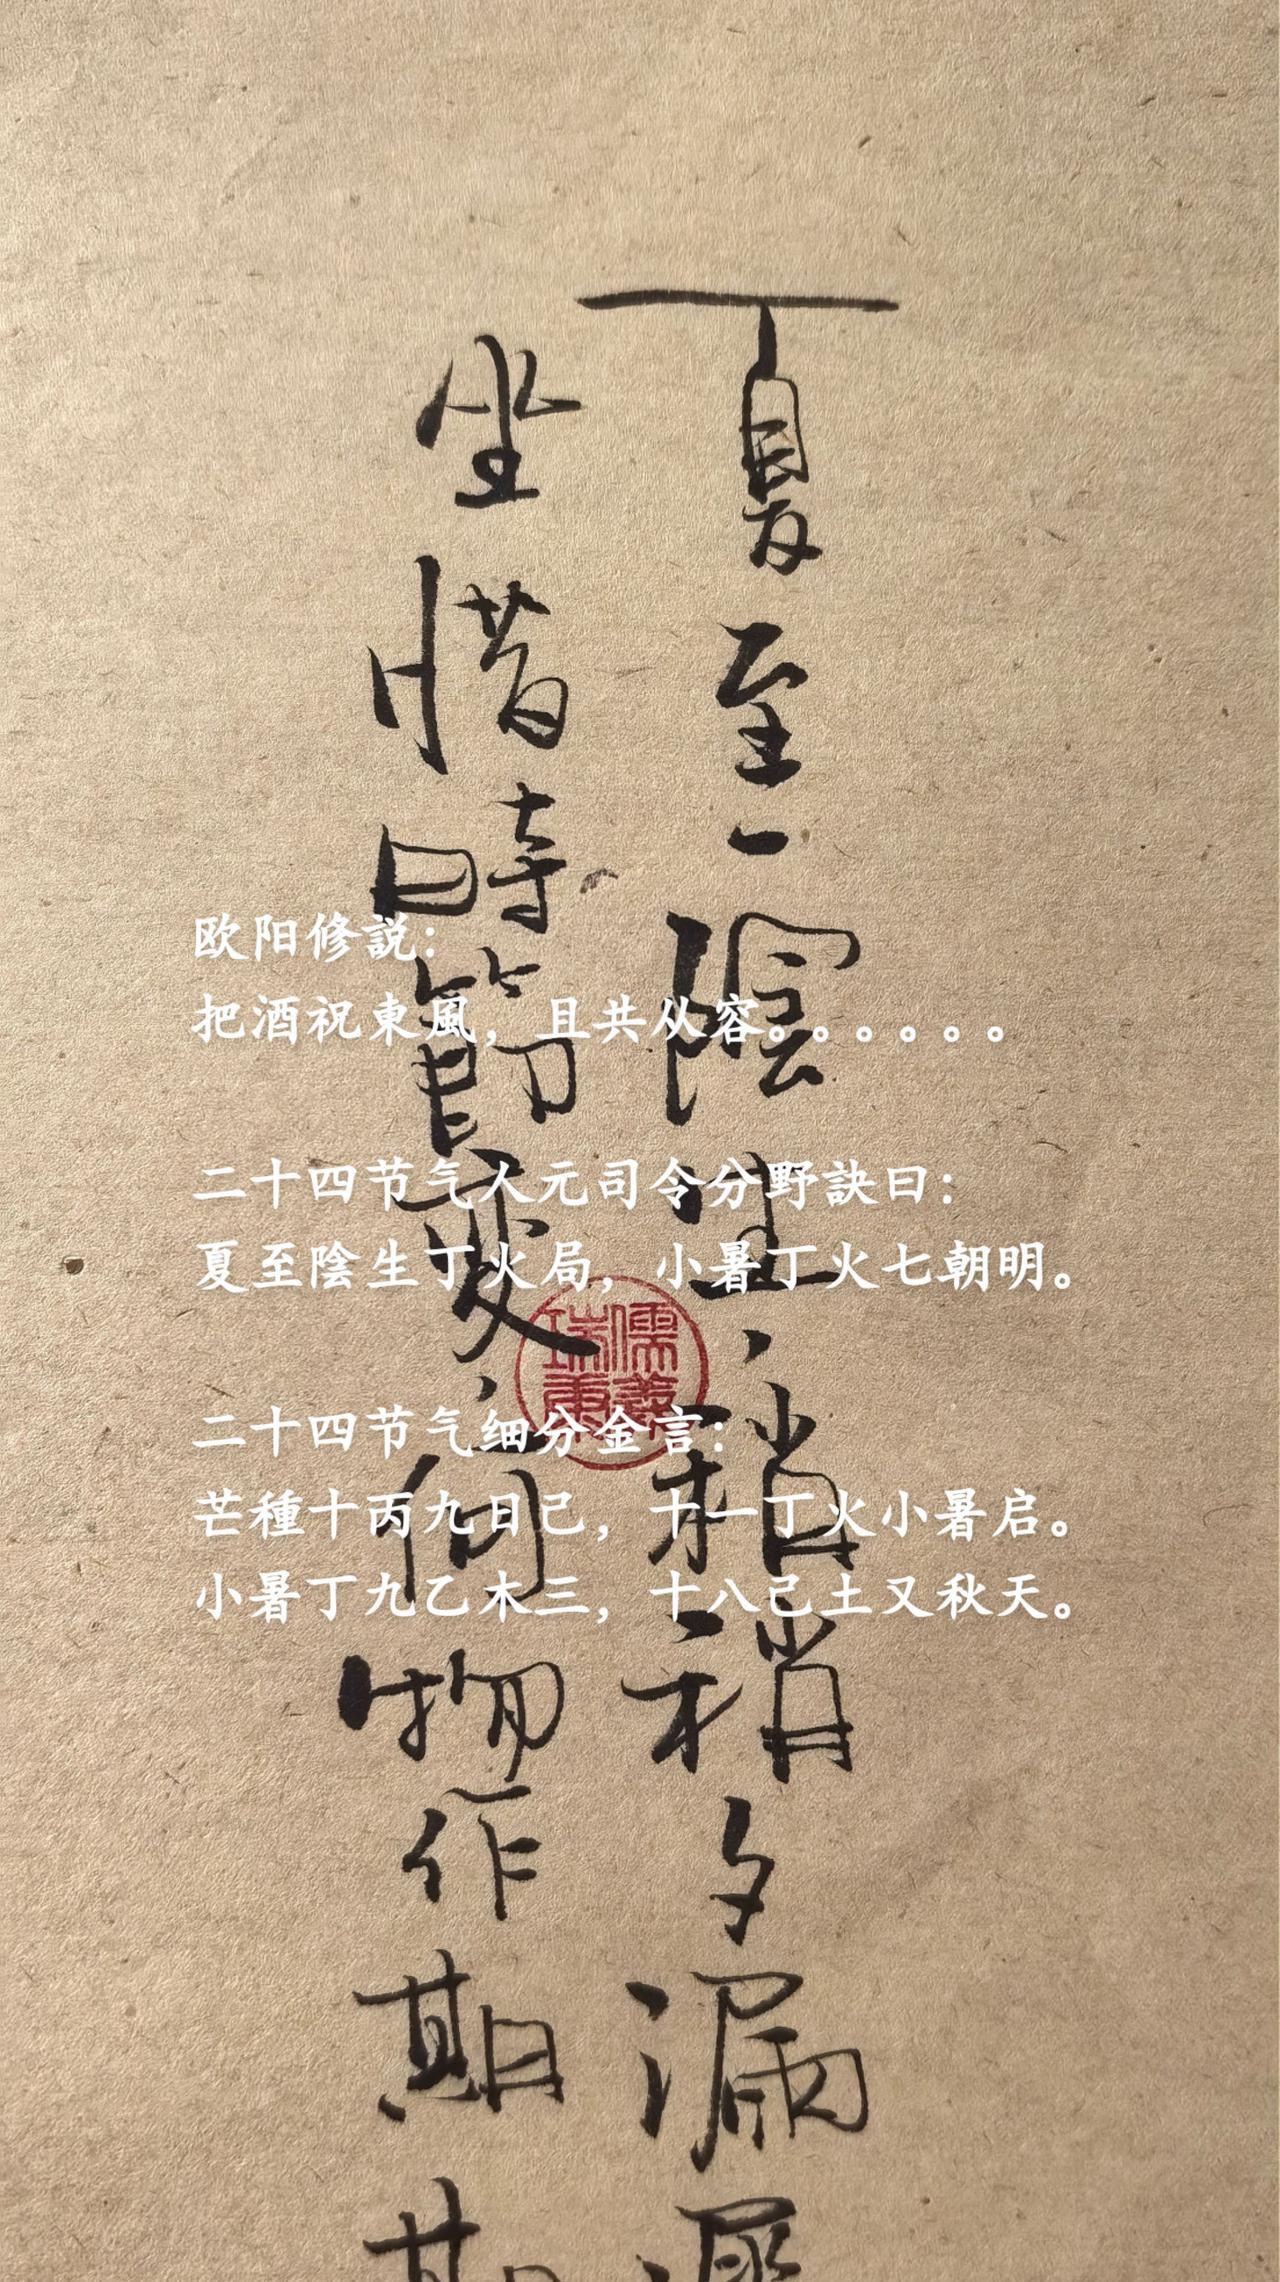 夏至一陰生、稍稍夕漏
坐惜時節變、何物作期
欧阳修説：
把酒祝東風，且共从容。。。。。。
二十四节气人元司令分野訣曰：
夏至陰生丁火局，小暑丁火七朝明。
二十四节气细分金言：
芒種十丙九日己，十一丁火小暑启。
小暑丁九乙木三，十八己土又秋天。